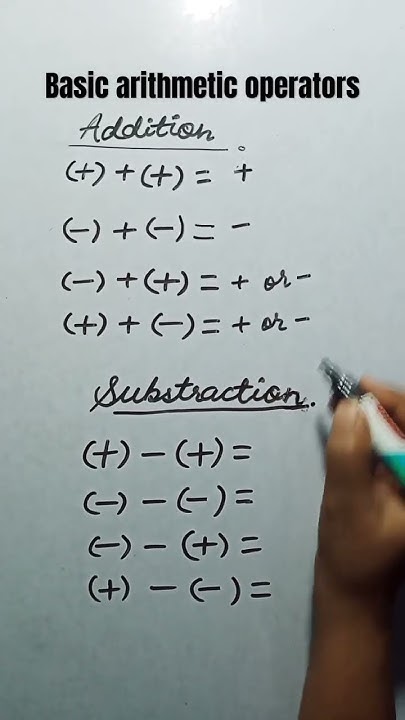 Basic arithmetic operators
Addition :
(+) + (+) = +
(-) + (-) = -
(-) + (+) = + or -
(+) + (-) = + or -
Substraction.
(+) - (+) =
(-) - (-) =
(-) - (+) =
(+) - (-) =